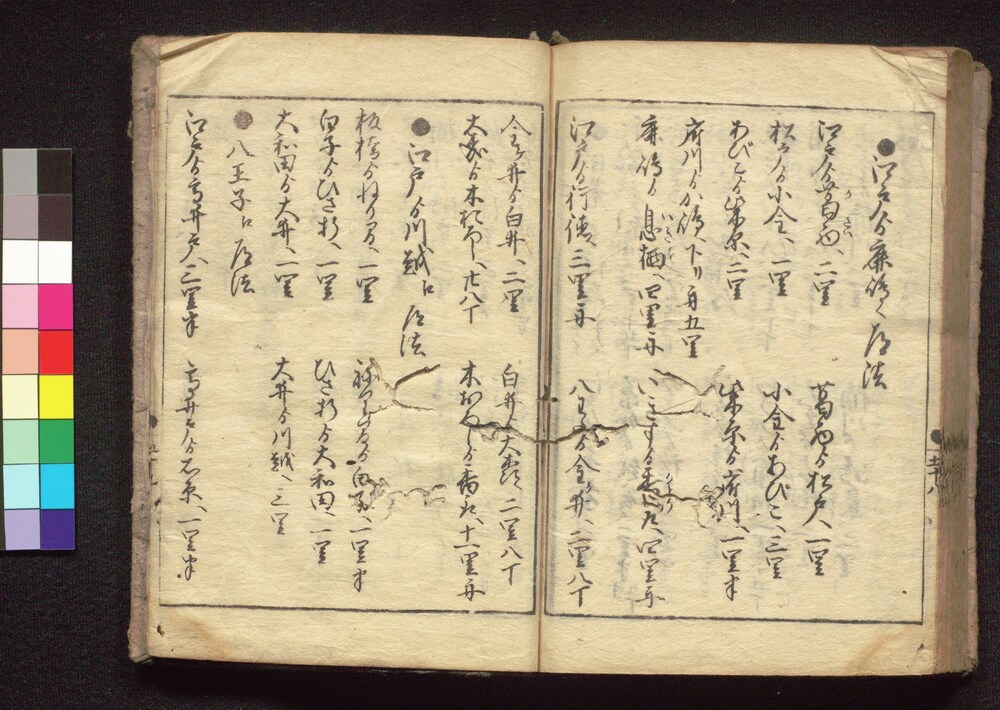 ●江戸ゟ鹿嶋へ道法
江戸ゟ葛西へ二里 葛西ゟ松戸へ一里
松戸ゟ小金へ一里 小金ゟあびこへ三里
あびこゟ柴原へ二里 柴原ゟ府川へ一里半
府川ゟか嶋へ下り舟五里
鹿嶋ゟ息栖へ四里舟 いきすゟ香取へ四里舟
江戸ゟ行徳へ三里舟 八わたゟ金ケ井へ二里八丁
金ケ井ゟ白井へ二里 白井ゟ大森へ二里八丁
大森ゟ木おろしへ廿八丁 木おろしゟ香取へ十一里舟
●江戸ゟ川越江道法
板橋ゟねりまへ一里 ねりまゟ白子へ一里半
白子ゟひざ折へ一里 ひざ折ゟ大和田へ一里
大和田ゟ大井へ一里 大井ゟ川越へ三里
●八王子江道法
江戸ゟ高井戸へ三里半 高井戸ゟ石原へ一里半
五十八